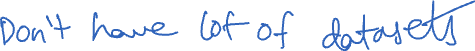 Don't have lot of datasets